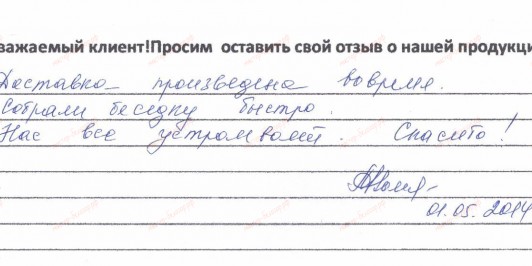 важаемый клиент!Просим оставить свой отзыв о нашей продукци
Доставка произведена вовремя.
Собрали беседку быстро.
Нас все устраивает. Спасибо!
01.05.2014